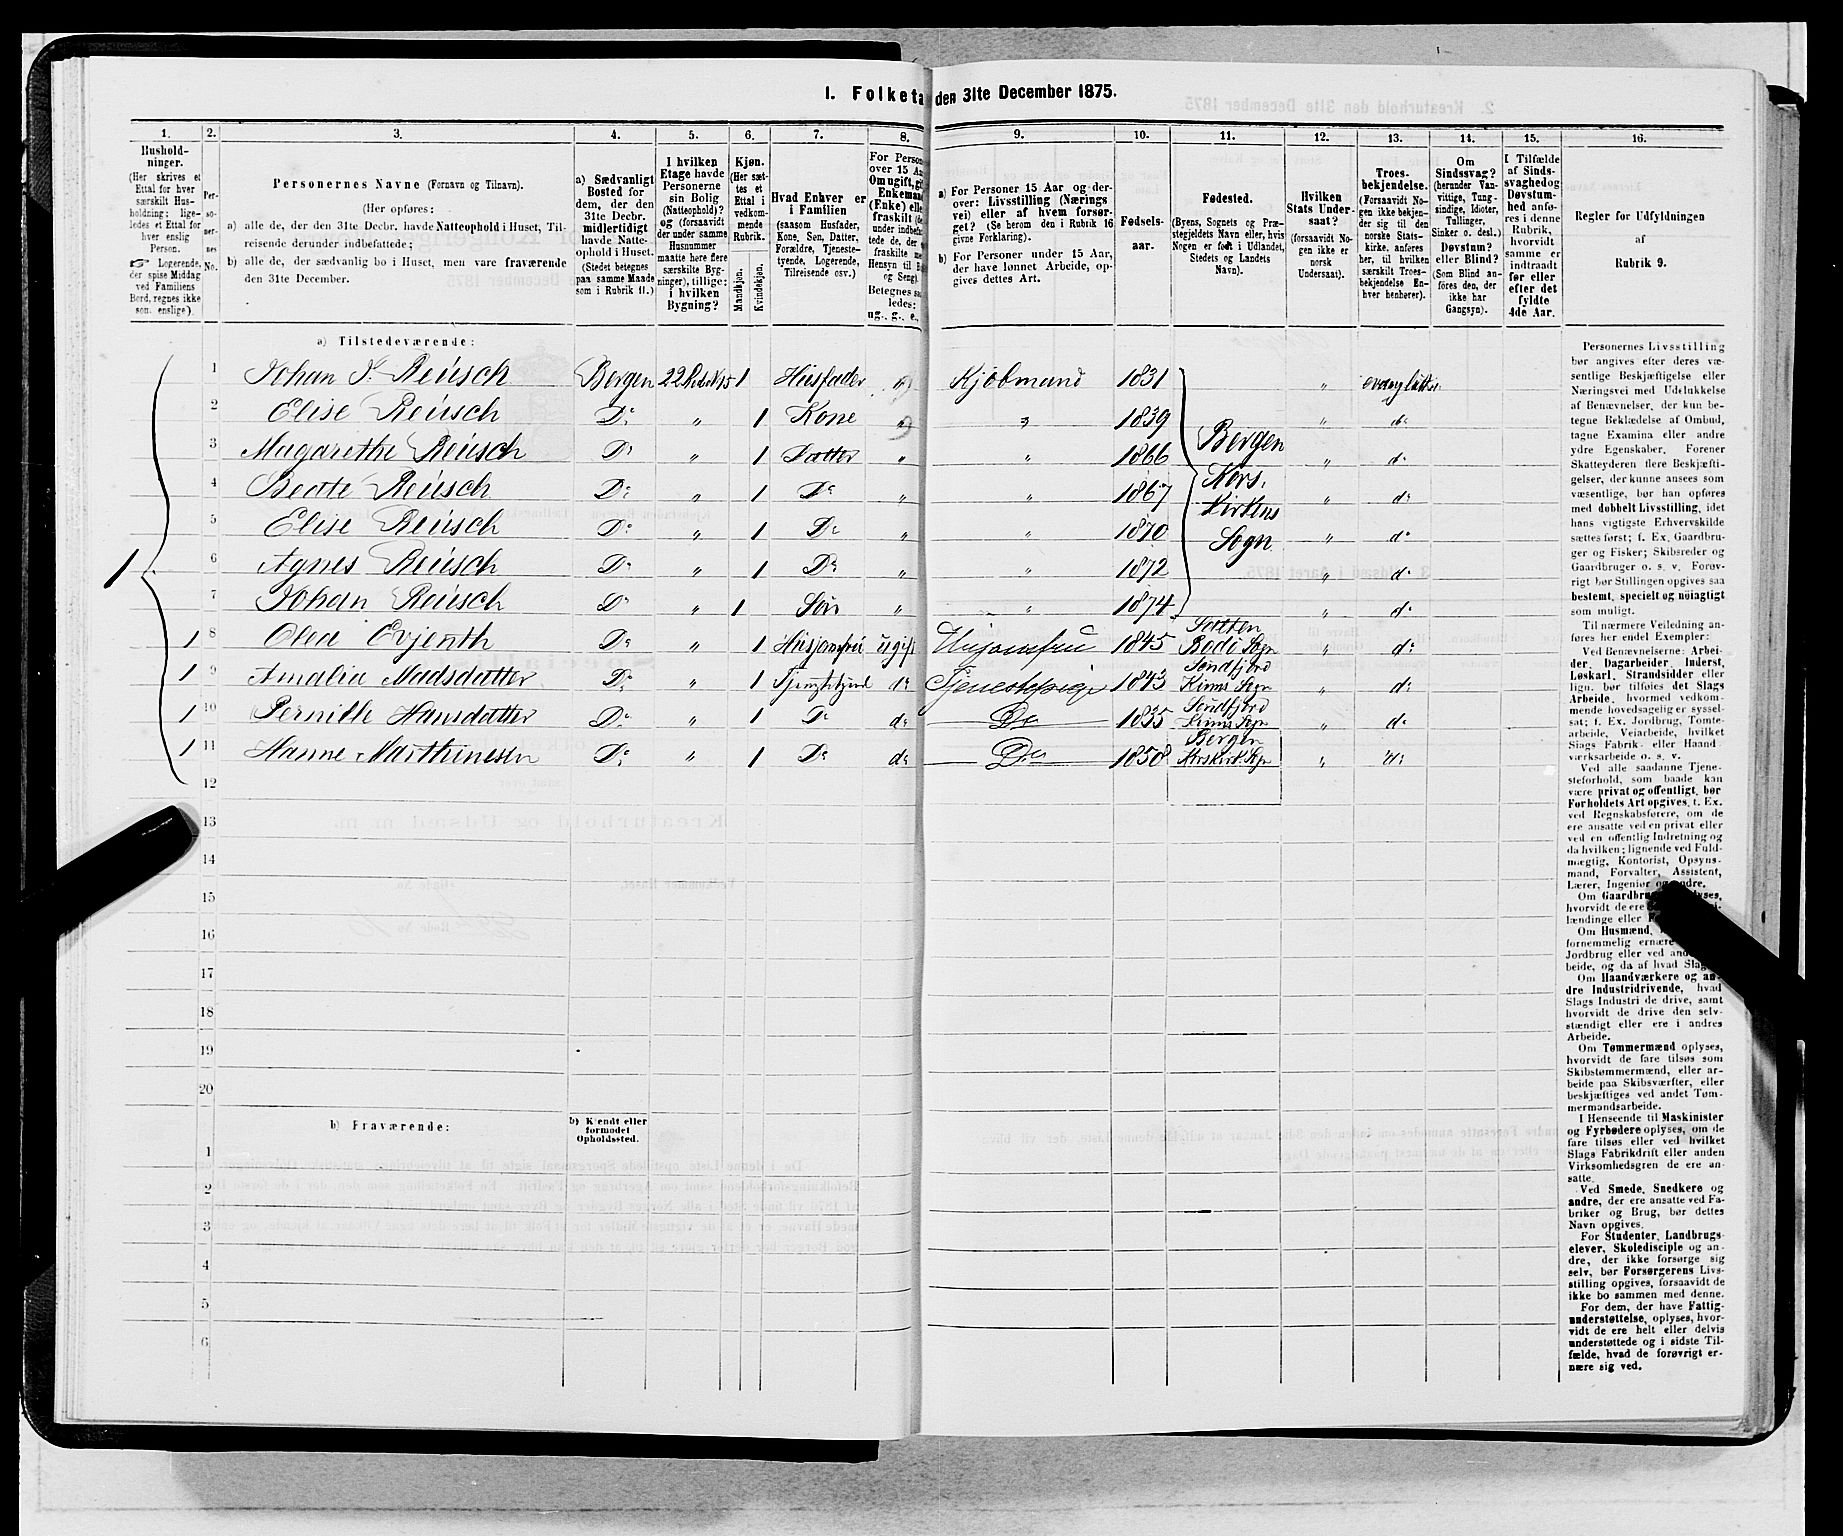 1. Folketa den 31te December 1875.
1. 2. 3. 4. 5. 6. 7. 8. 9. 10. 11. 12. 13. 14. 15. 16.
Husholdninger.
(Her skrives et
Ettal for hver
særskilt Husholdning;
ligeledes et Ettal for
hver enslig
Person.
☞ Logerende,
der spise Middag
ved Familiens
Bord, regnes ikke
som enslige).
Personernes No.
Personernes Navne (Fornavn og Tilnavn).
(Her opføres:
a) alle de, der den 31te Decbr. havde Natteophold i Huset, Tilreisende
derunder indbefattede;
b) alle de, der sædvanlig bo i Huset, men vare fraværende
den 31te December.
a) Sædvanligt
Bosted for
dem, der den
31te Decbr.
midlertidigt
havde Natteophold
i Huset.
(Stedet betegnes
paa samme Maade
som i Rubrik 11.)
I hvilken
Etage havde
Personerne
sin Bolig
(Natteophold)?
og (forsaavidt
der under samme
Husnummer
maatte høre flere
særskilte Bygninger),
tillige:
i hvilken
Bygning?
Kjøn.
(Her sættes
et
Ettal i
vedkommende
Rubrik.
Mandkjøn.
Kvindekjøn.
Hvad Enhver er
i Familien
(saasom Husfader,
Kone, Søn, Datter,
Forældre, Tjenestetyende,
Logerende,
Tilreisende osv.)
For Person
over 15 Aa
Om ugift, gi
Enkeman
(Enke) elle
fraskilt (de
under indbefattede
de, der
fraskilte me
Hensyn til Bo
og Seng).
Betegnes saaledes:
ug., g., e.,
a) For Personer 15 Aar og derover:
Livsstilling (Næringsvei)
eller af hvem forsørget?
(Se herom den i Rubrik 16
givne Forklaring).
b) For Personer under 15 Aar,
der have lønnet Arbeide, opgives
dettes Art.
Fødselsaar.
Fødested.
(Byens, Sognets og Præstegjeldets
Navn eller, hvis
Nogen er født i Udlandet,
Stedets og Landets
Navn).
Hvilken
Stats Undersaat?
(forsaavidt Nogen
ikke er
norsk
Undersaat).
Troesbekjendelse.
(Forsaavidt Nogen
ikke bekjender
sig til den
norske Statskirke,
anføres
her, til hvilken
særskilt Troesbekjendelse
Enhver
henhører).
Om
Sindssvag?
(herunder Vanvittige,
Tungsindige,
Idioter,
Tullinger,
Sinker o. desl.)
Døvstum?
eller Blind?
(Som Blind anføres
den, der
ikke har
Gangsyn).
I Tilfælde
af Sindssvaghed
og
Døvstumhed
anføres
i denne
Rubrik,
hvorvidt
samme er
indtraadt
før eller
efter det
fyldte
4de Aar.
Regler for Udfyldningen
af
Rubrik 9.
a) Tilstedeværende:
1 Johan F. Reusch Bergen 1 Husfader g Kjøbmand 1831 "
2 Elise Reusch Do " 1 Kone g " 1839 " do
3 Magarethe Reusch Do " 1 Datter " " 1866 Bergen " do
4 Beate Reusch Do " 1 Do " " 1867 Kors. " do
5 Elise Reusch Do " 1 Do " " 1870 Kirkens Sogn " do
6 Agnes Reusch Do " 1 Do " " 1872 " do
7 Johan Reusch Do " 1 Søn " " 1874 " do
1
1 8 Olea Evjenth Do " 1 Husjomfru ugift Husjomfru 1845 Bodø Sogn " do
1 9 Amalia Madsdatter Do " 1 do Tjenestepige 1843 Søndfjord Kinns Sogn " do
1 10 Pernille Hansdatter Do " 1 Do do Do 1835 Søndfjord Kinns Sogn " do
1 11 Hanne Marthinesen Do " 1 Do do Do 1858 Bergen Korskirk. Sogn " do
12
13
14
15
16
17
18
19
20
b) Fraværende:
b) Kjendt eller
formodet
Opholdssted.
1
2
3
4
5
6
Personernes Livsstilling
bør angives efter deres væsentlige
Beskjæftigelse eller
Næringsvei med Udelukkelse
af Benævnelser, der kun betegne
Beklædelse af Ombud,
tagne Examina eller andre
ydre Egenskaber. Forener
Skatteyderen flere Beskjæftigelser,
der kunne ansees som
væsentlige, bør han opføres
med dobbelt Livsstilling, idet
hans vigtigste Erhvervskilde
sættes først; f. Ex. Gaardbruger
og Fisker; Skibsreder og
Gaardbruger o. s. v. Forøvrigt
bør Stillingen opgives saa
bestemt, specielt og nøiagtigt
som muligt.
Til nærmere Veiledning anføres
her endel Exempler:
Ved Benævnelserne: Arbeider,
Dagarbeider, Inderst,
Løskarl, Strandsidder eller
lign. bør tilføies det Slags
Arbeide, hvormed vedkommende
hovedsagelig er sysselsat;
f. Ex. Jordbrug, Tomtearbeide,
Veiarbeide, hvilket
Slags Fabrik- eller Haandværksarbeide
o. s. v.
Ved alle saadanne Tjenesteforhold,
som baade kan
være privat og offentligt, bør
Forholdets Art opgives, f. Ex.
ved Regnskabsførere, om de
ere ansatte ved en privat eller
ved en offentlig Indretning og
da hvilken; lignende ved Fuldmægtig,
Kontorist, Opsynsmand,
Forvalter, Assistent,
Lærer, Ingeniør og andre.
Om Gaardbru lyses,
hvorvidt de ere
lændinge eller
Om Husmænd,
fornemmelig ernære
Jordbrug eller ved an
beide, og da af hvad Slag
Om Haandværkere og andre
Industridrivende, hvad
Slags Industri de drive, samt
hvorvidt de drive den selvstændigt
eller ere i andres
Arbeide.
Om Tømmermænd oplyses,
hvorvidt de fare tilsøs som
Skibstømmermænd, eller arbeide
paa Skibsværfter, eller
beskjæftiges ved andet Tømmermandsarbeide.
I Henseende til Maskinister
og Fyrbødere oplyses, om de
fare tilsøs eller ved hvilket
Slags Fabrikdrift eller anden
Virksomhedsgren de ere ansatte.
Ved Smede, Snedkere og
andre, der ere ansatte ved Fabriker
og Brug, bør dettes
Navn opgives.
For Studenter, Landbrugselever,
Skoledisciple og andre,
der ikke forsørge sig
selv, bør Forsørgerens Livsstilling
opgives, forsaavidt de
ikke bo sammen med denne.
For dem, der have Fattigunderstøttelse,
oplyses, hvorvidt
de ere helt eller delvis
understøttede og i sidste Tilfælde,
hvad de forøvrigt ernære
sig ved.